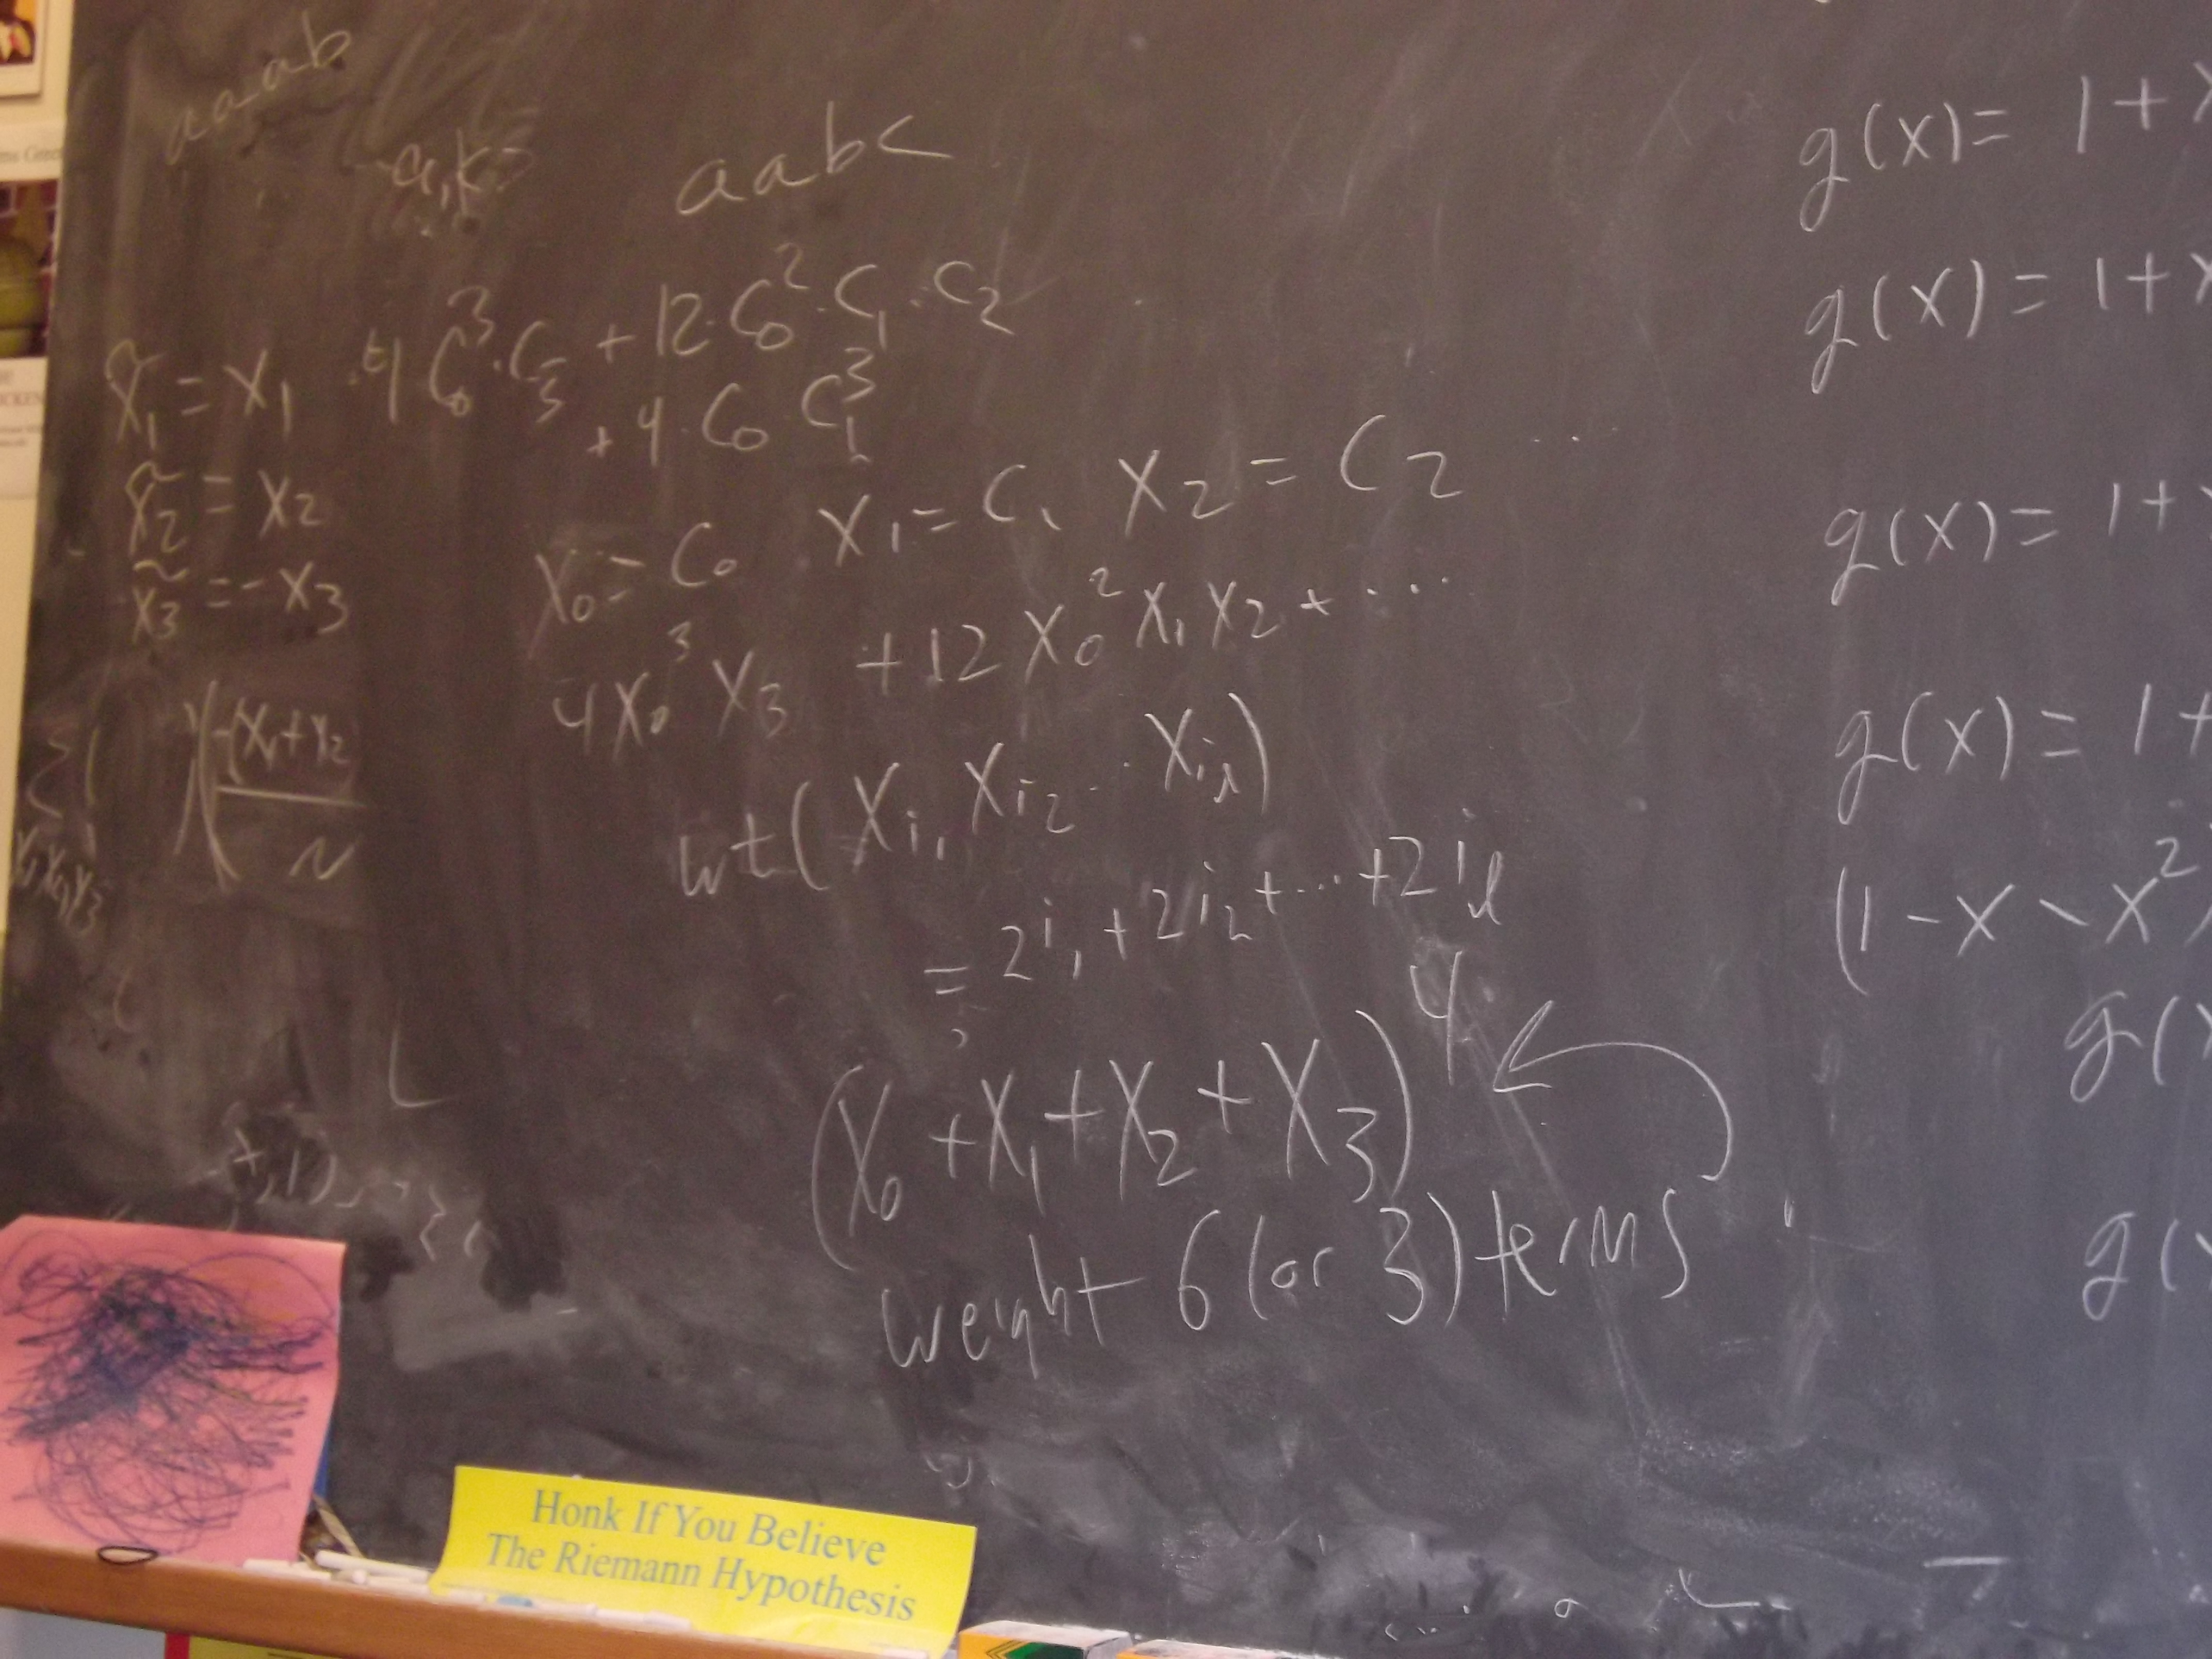 aaab
aabc
4 C₀³·C₃ + 12·C₀²·C₁·C₂
+ 4·C₀ C₁³
x̃₁ = x₁
x̃₂ = x₂
x̃₃ = -x₃
x₀ = C₀ x₁ = C₁ x₂ = C₂ ...
4x₀³ x₃ + 12 x₀² x₁ x₂ + ....
-(x₁+x₂
N
wt(x_{i₁} x_{i₂} ... x_{i_l})
= 2i₁ + 2i₂ + ... + 2i_l
(x₀ + x₁ + x₂ + x₃)⁴
weight 6 (or 3) terms
g(x) = 1 + x
g(x) = 1 + x
g(x) = 1 +
g(x) = 1 +
(1 - x - x²
g(x
g(
Honk If You Believe
The Riemann Hypothesis